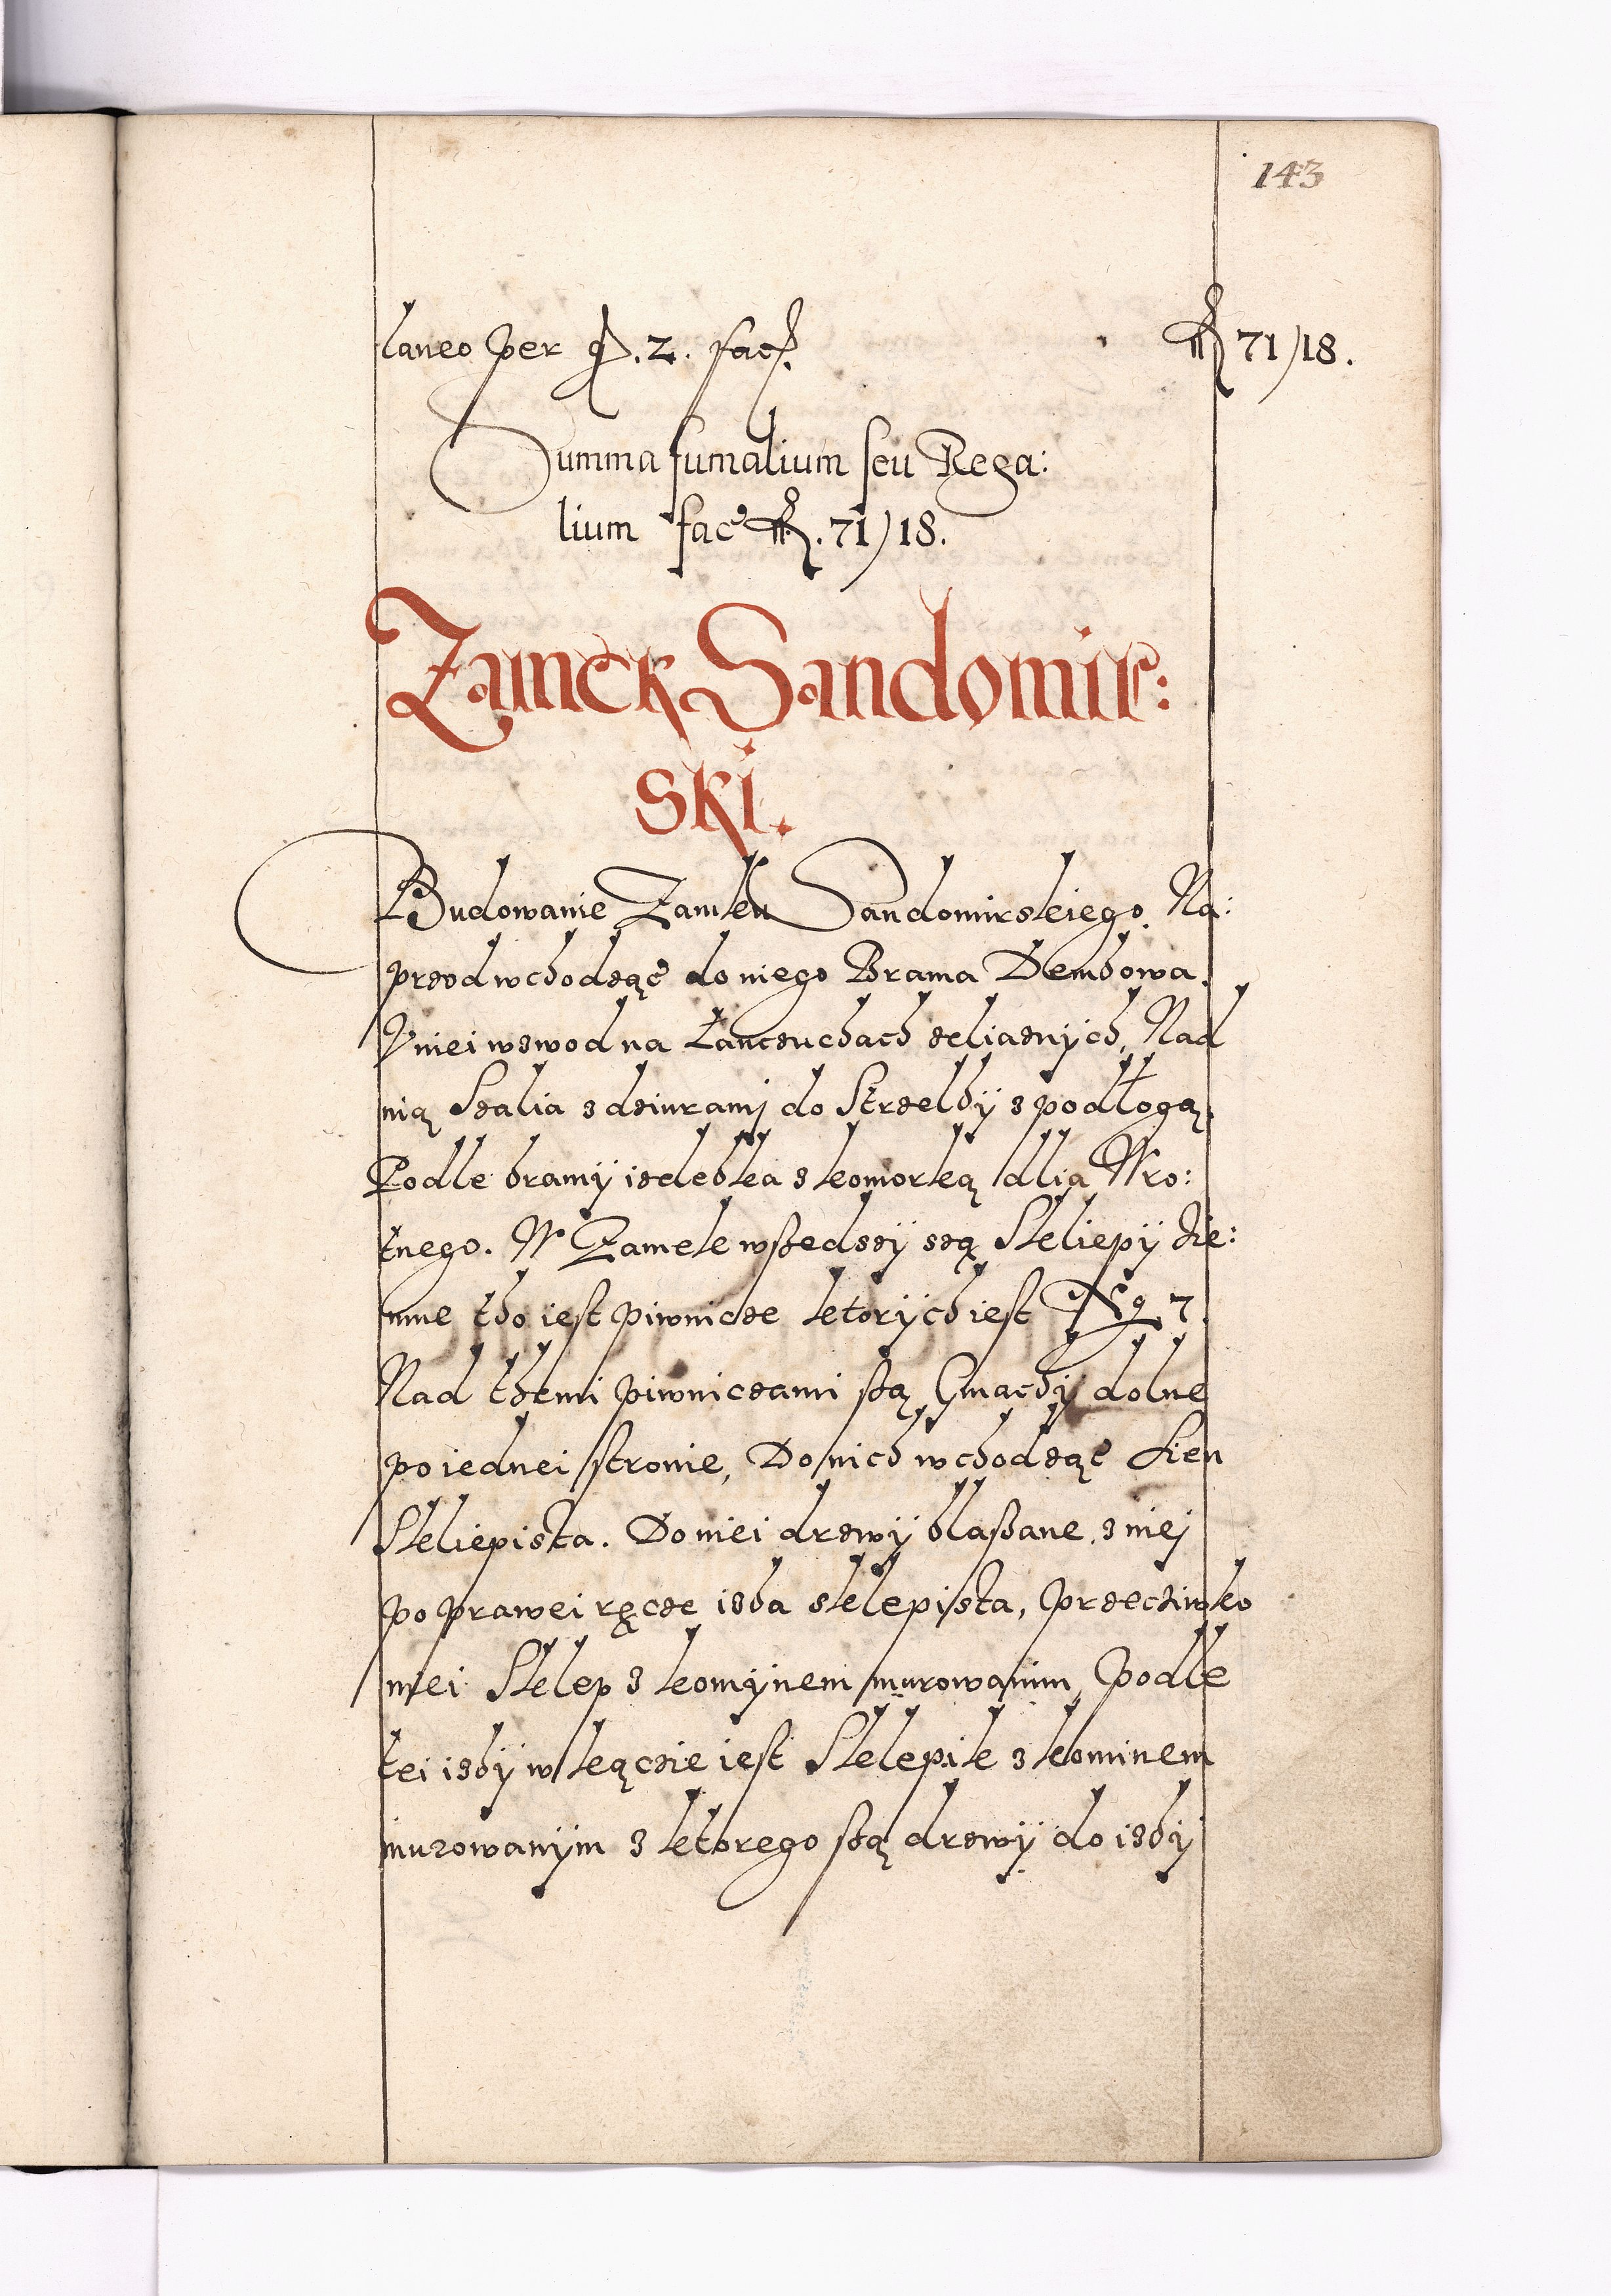 143
laneo per g. 2. fac. fl 71/18.
Summa fumalium seu Rega:
lium fac. fl. 71/18.
Zamek Sandomir:
ski.
Budowanie Zamku Sandomirskiego. Na:
przod wchodząc do niego Brama Dembowa.
V niei wzwod na Łanczuchach zeliaznÿch, Nad
nią Szalia z dziurami do Strzelbÿ z podłogą.
Podle bramÿ izdebka z komorką dlia Wro:
tnego. W Zamek wszedszÿ szą Skliepÿ zie:
mne tho iest piwnicze ktorÿch iest No 7.
Nad themi piwniczami szą Gmachÿ dolne
po iednei stronie, Do nich wchodząc Sien
Skliepista. Do niei drzwÿ blaszane, z niej
po prawei ręcze izba sklepista, przecziwko
niei Sklep z komÿnem murowanim, podle
tei izbÿ w kączie iest Sklepik z kominem
murowanÿm z ktorego szą drzwÿ do izbÿ